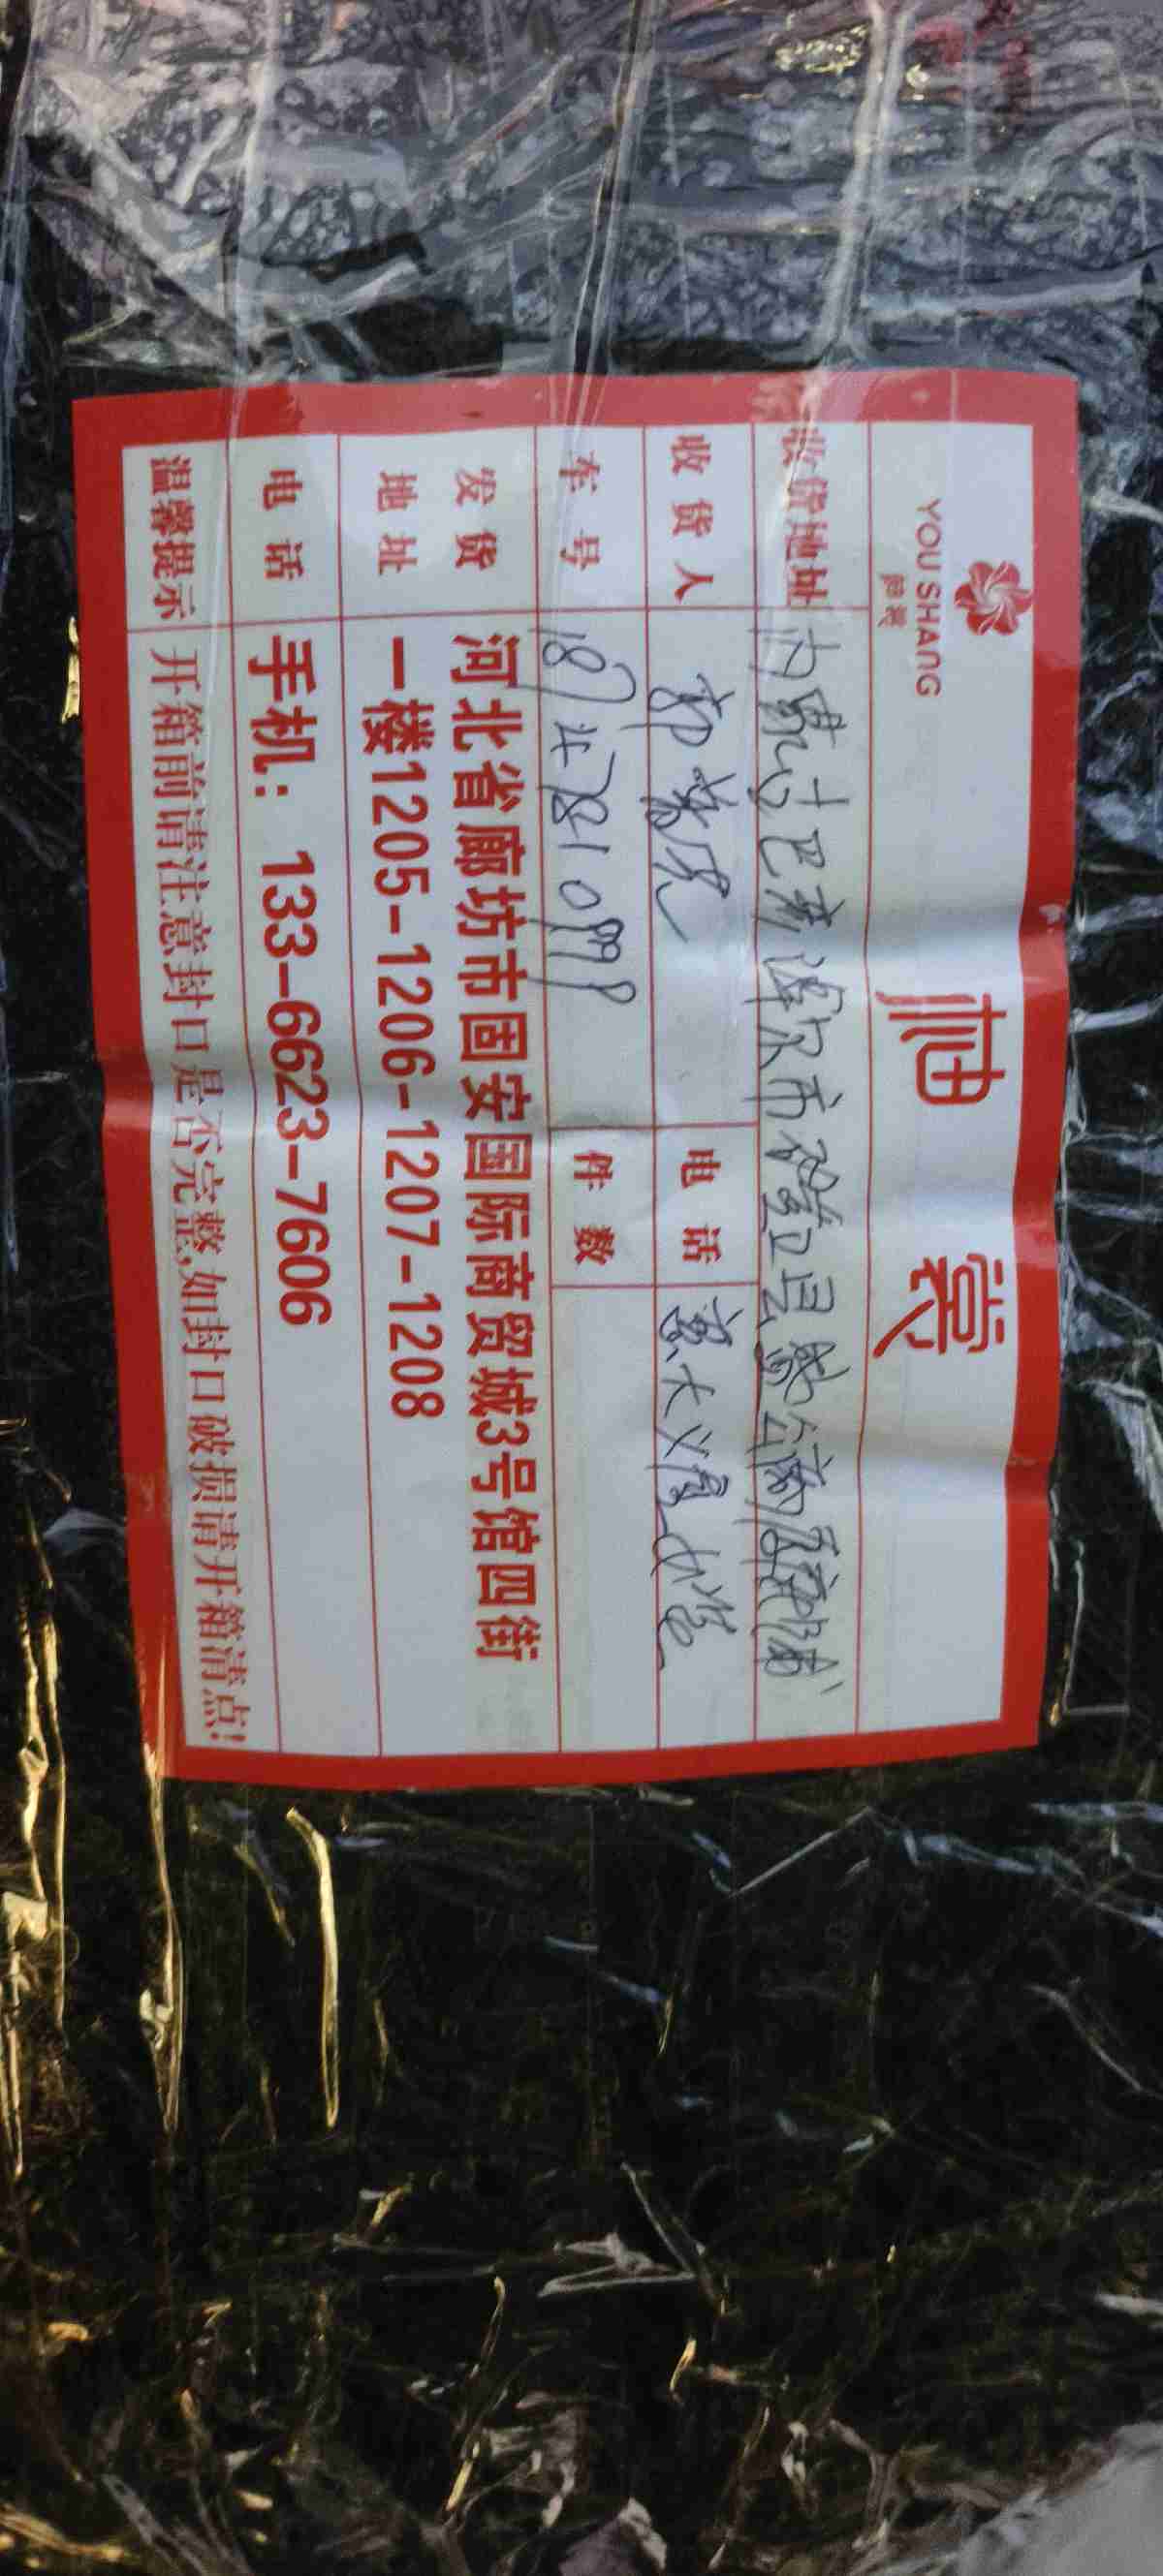 YOU SHANG
柚裳
收货地址 内蒙古巴彦淖尔市磴口县
收货人 郭
电话
车号 187 4781 0999
件数
发货地址 河北省廊坊市固安国际商贸城3号馆四街
一楼1205-1206-1207-1208
电话 手机：133-6623-7606
温馨提示 开箱前请注意封口是否完整,如封口破损请开箱清点!